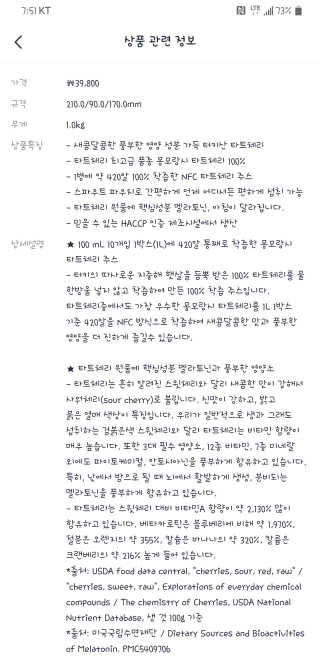 7:51 KT
73%
상품 관련 정보
가격 ₩39,800
규격 210.0/90.0/170.0mm
무게 1.0kg
상품특징 - 새콤달콤한 풍부한 영양 성분 가득 터키산 타트체리
- 타트체리 최고급 품종 몽모랑시 타트체리 100%
- 1병에 약 420알 100% 착즙한 NFC 타트체리 주스
- 스파우트 파우치로 간편하게 언제 어디서든 편하게 섭취 가능
- 타트체리 원물에 핵심성분 멜라토닌, 아침이 달라집니다.
- 믿을 수 있는 HACCP 인증 제조시설에서 생산
상세설명 ★ 100 mL 10개입 1박스(1L)에 420알 통째로 착즙한 몽모랑시
타트체리 주스
- 터키의 따사로운 지중해 햇살을 듬뿍 받은 100% 타트체리를 물
한방울 넣지 않고 착즙하여 만든 100% 착즙 주스입니다.
타트체리중에서도 가장 우수한 몽모랑시 타트체리를 1L 1박스
기준 420알을 NFC 방식으로 착즙하여 새콤달콤한 맛과 풍부한
영양을 더 진하게 즐길수 있습니다.
★ 타트체리 원물에 핵심성분 멜라토닌과 풍부한 영양소
- 타트체리는 흔히 알려진 스윗체리와 달리 새콤한 맛이 강해서
사워체리(sour cherry)로 불립니다. 신맛이 강하고, 밝고
붉은 열매 색상이 특징입니다. 우리가 일반적으로 생과 그래도
섭취하는 검붉은색 스윗체리와 달리 타트체리는 비타민 함량이
매우 높습니다. 또한 3대 필수 영양소, 12종 비타민, 7종 미네랄
외에도 파이토케미컬, 안토시아닌을 풍부하게 함유하고 있습니다.
특히, 낮에서 밤으로 될 때 뇌에서 활발하게 생성, 분비되는
멜라토닌을 풍부하게 함유하고 있습니다.
- 타트체리는 스윗체리 대비 비타민A 함량이 약 2,130% 많이
함유하고 있습니다. 베타카로틴은 블루베리에 비해 약 1,970%,
철분은 오렌지의 약 355%, 칼슘은 바나나의 약 320%, 칼륨은
크랜베리의 약 216% 높게 들어 있습니다.
*출처: USDA food data central, "cherries, sour, red, raw" /
"cherries, sweet, raw", Explorations of everyday chemical
compounds / The chemistry of Cherries, USDA National
Nutrient Database, 생 것 100g 기준
*출처: 미국국립수면재단 / Dietary Sources and Bioactivities
of Melatonin, PMC5409706